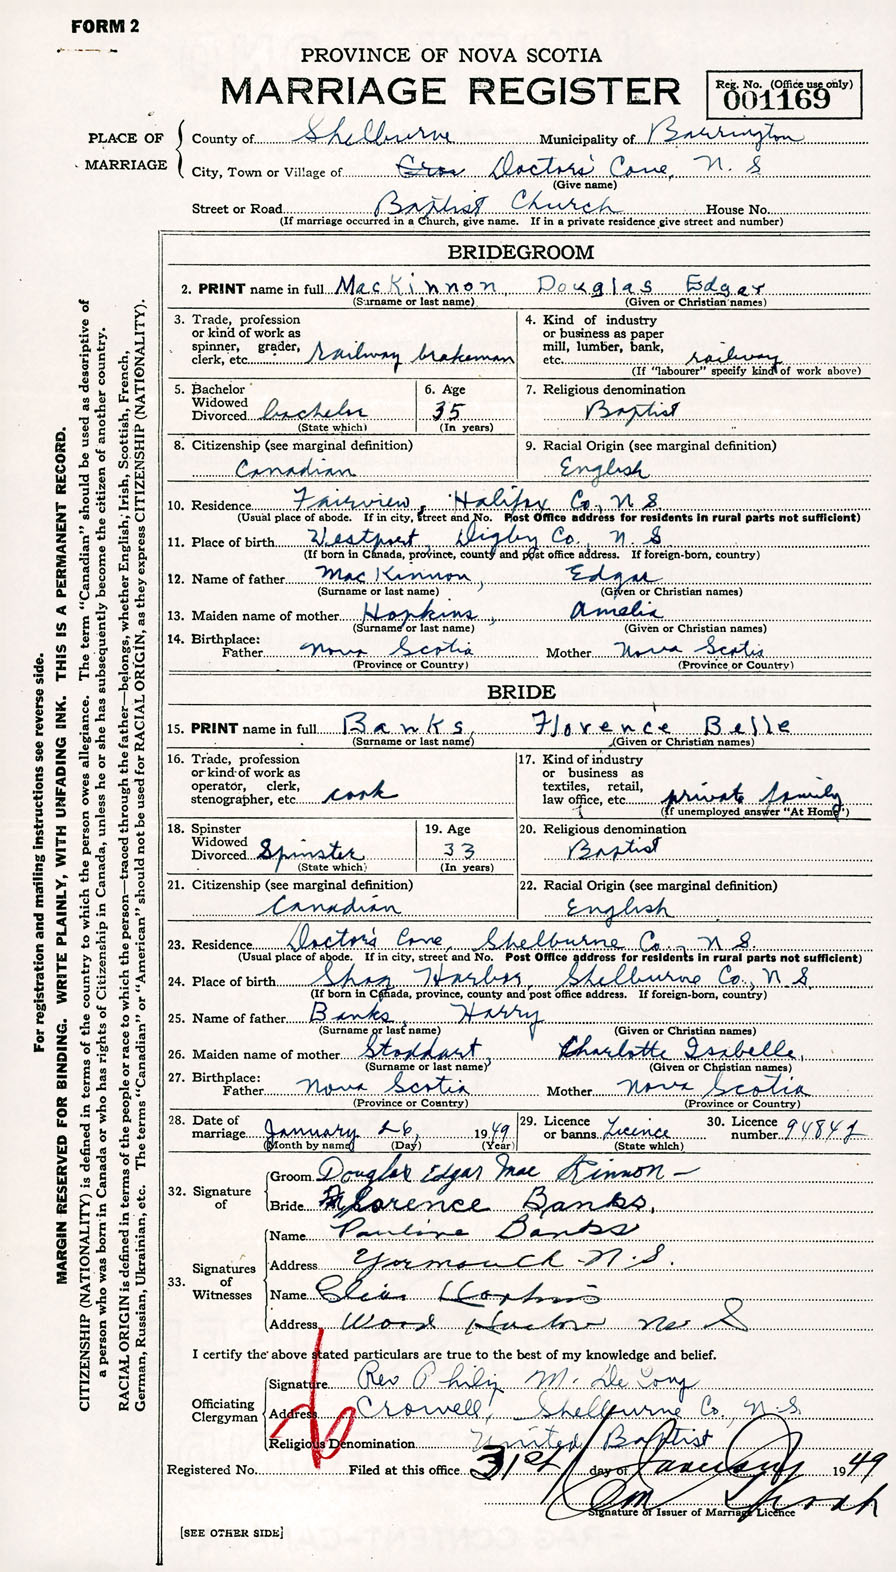 FORM 2
PROVINCE OF NOVA SCOTIA
MARRIAGE REGISTER
Reg. No. (Office use only)
001169
PLACE OF MARRIAGE
County of Shelburne Municipality of Barrington
City, Town or Village of Doctors' Cove, N. S
(Give name)
Street or Road Baptist Church House No.
(If marriage occurred in a Church, give name. If in a private residence give street and number)
BRIDEGROOM
2. PRINT name in full MacKinnon, Douglas Edgar
(Surname or last name) (Given or Christian names)
3. Trade, profession or kind of work as spinner, grader, clerk, etc. railway brakeman
4. Kind of industry or business as paper mill, lumber, bank, etc. railway
(If "labourer" specify kind of work above)
5. Bachelor Widowed Divorced bachelor
(State which)
6. Age 35
(In years)
7. Religious denomination
Baptist
8. Citizenship (see marginal definition)
Canadian
9. Racial Origin (see marginal definition)
English
10. Residence Fairview, Halifax Co., N S
(Usual place of abode. If in city, street and No. Post Office address for residents in rural parts not sufficient)
11. Place of birth Westport, Digby Co., N. S
(If born in Canada, province, county and post office address. If foreign-born, country)
12. Name of father MacKinnon, Edgar
(Surname or last name) (Given or Christian names)
13. Maiden name of mother Hopkins, Amelia
(Surname or last name) (Given or Christian names)
14. Birthplace:
Father Nova Scotia Mother Nova Scotia
(Province or Country) (Province or Country)
BRIDE
15. PRINT name in full Banks, Florence Belle
(Surname or last name) (Given or Christian names)
16. Trade, profession or kind of work as operator, clerk, stenographer, etc. cook
17. Kind of industry or business as textiles, retail, law office, etc. private family
(If unemployed answer "At Home")
18. Spinster Widowed Divorced Spinster
(State which)
19. Age 33
(In years)
20. Religious denomination
Baptist
21. Citizenship (see marginal definition)
Canadian
22. Racial Origin (see marginal definition)
English
23. Residence Doctor's Cove, Shelburne Co., N S.
(Usual place of abode. If in city, street and No. Post Office address for residents in rural parts not sufficient)
24. Place of birth Shag Harbor, Shelburne Co., N S
(If born in Canada, province, county and post office address. If foreign-born, country)
25. Name of father Banks, Harry
(Surname or last name) (Given or Christian names)
26. Maiden name of mother Stoddart, Charlotte Isabelle,
(Surname or last name) (Given or Christian names)
27. Birthplace:
Father Nova Scotia Mother Nova Scotia
(Province or Country) (Province or Country)
28. Date of marriage January 26, 1949
(Month by name) (Day) (Year)
29. Licence or banns Licence
(State which)
30. Licence number
32. Signature of
Groom Douglas Edgar Mac Kinnon
Bride Florence Banks,
33. Signatures of Witnesses
Name Pauline Banks
Address Yarmouth N. S.
Name Hopkins
Address Wood Harbor N. S
I certify the above stated particulars are true to the best of my knowledge and belief.
Officiating Clergyman
Signature Rev Philip M. De Long
Address Crowell, Shelburne Co., N. S.
Religious Denomination United Baptist
Registered No. Filed at this office 31st day of January 1949
Signature of Issuer of Marriage Licence
[SEE OTHER SIDE]
For registration and mailing instructions see reverse side.
MARGIN RESERVED FOR BINDING. WRITE PLAINLY, WITH UNFADING INK. THIS IS A PERMANENT RECORD.
CITIZENSHIP (NATIONALITY) is defined in terms of the country to which the person owes allegiance. The term "Canadian" should be used as descriptive of
a person who was born in Canada or who has rights of Citizenship in Canada, unless he or she has subsequently become the citizen of another country.
RACIAL ORIGIN is defined in terms of the people or race to which the person—traced through the father—belongs, whether English, Irish, Scottish, French,
German, Russian, Ukrainian, etc. The terms "Canadian" or "American" should not be used for RACIAL ORIGIN, as they express CITIZENSHIP (NATIONALITY).